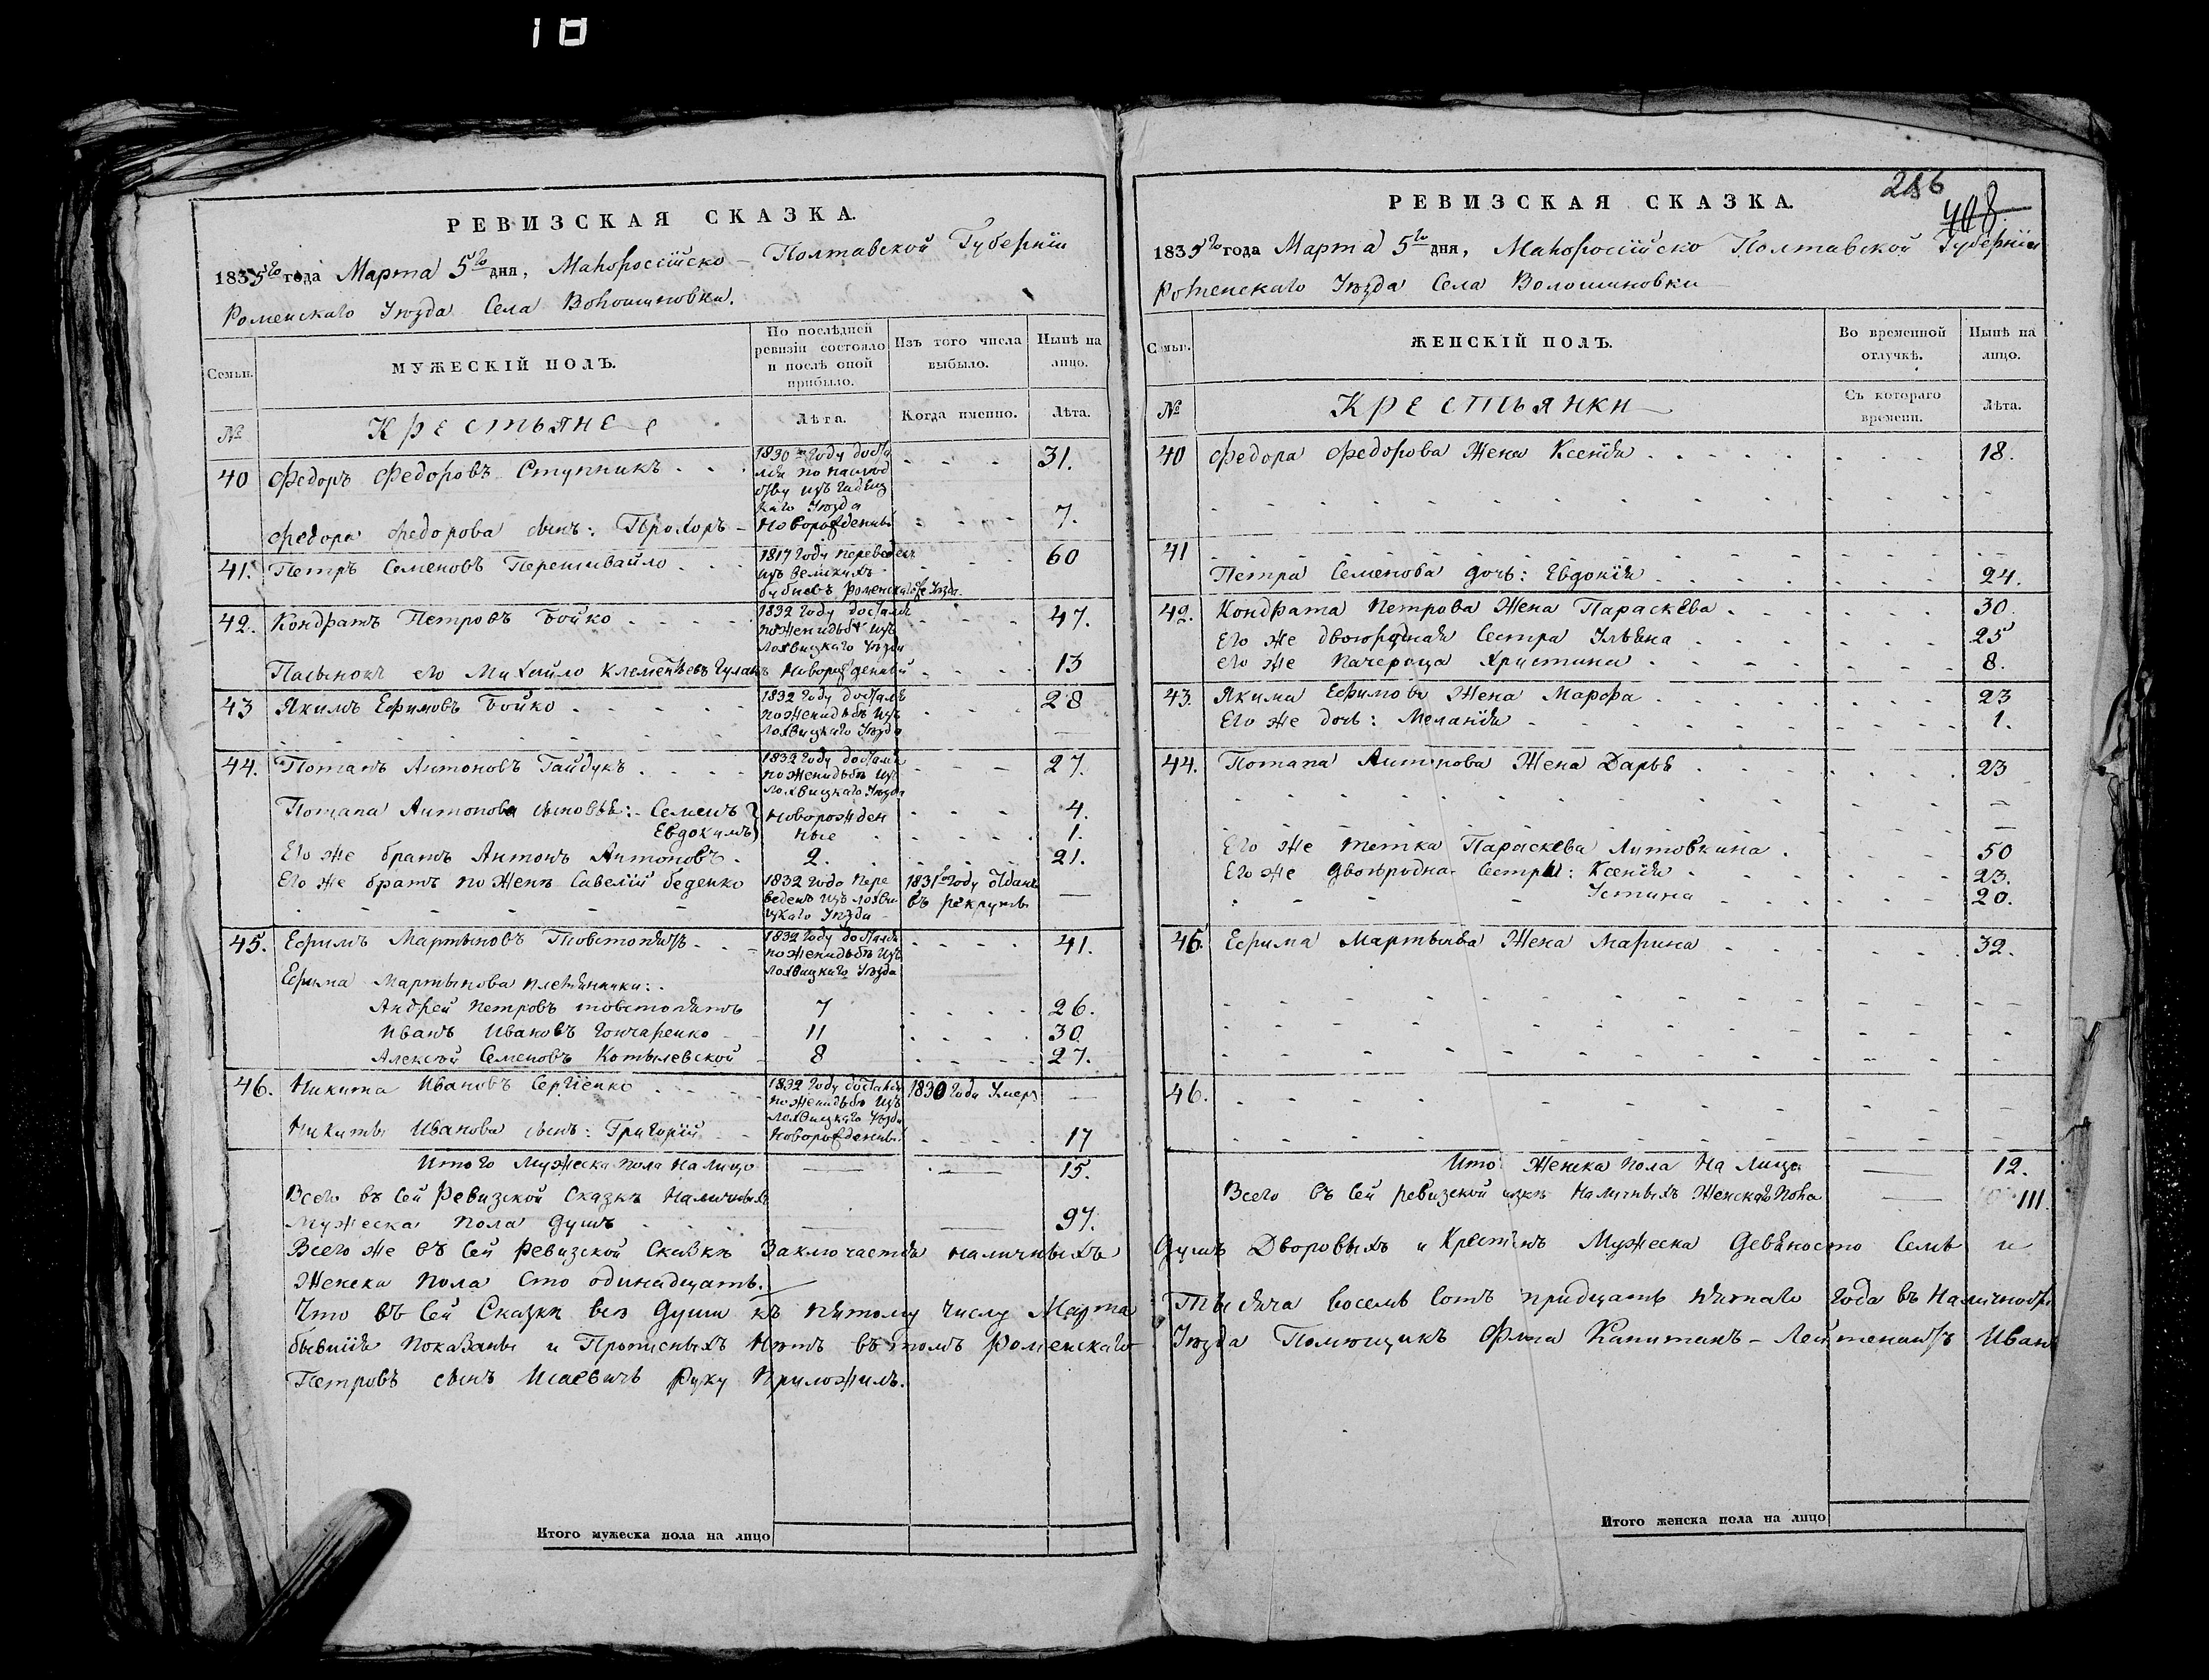 РЕВИЗСКАЯ СКАЗКА.
1835го года Марта 5го дня, Малороссійско-Полтавской Губерніи
Роменскаго Уѣзда Села Волошиновки.
Семьи.
МУЖЕСКІЙ ПОЛЪ.
По послѣдней ревизіи состояло и послѣ оной прибыло.
Изъ того числа выбыло.
Нынѣ на лицо.
№
Крестьяне
Лѣта.
Когда именно.
Лѣта.
40 Федоръ Федоровъ Ступникъ 1830 году достался по наслѣдству изъ Гадяцкаго Уѣзда 31.
Федора Федорова сынъ: Прохоръ новорожденный 7.
41. Петръ Семеновъ Перешивайло 1817 году переведенъ изъ великихъ бубновъ Роменскаго Уѣзда 60
42. Кондратъ Петровъ Бойко 1832 году достался по женидьбѣ изъ Лохвицкаго Уѣзда 47.
Пасынокъ его Михайло Клементьевъ новорожденный 13
43 Якимъ Ефимовъ Бойко 1832 году досталъ по женидьбѣ изъ Лохвицкаго Уѣзда 28
44. Потапъ Антоновъ Гайдукъ 1832 году достался по женидьбѣ изъ Лохвицкаго Уѣзда 27.
Потапа Антонова сыновья: Семенъ 4.
Евдокимъ новорожденные 1.
Его же братъ Антонъ Антоновъ 2. 21.
Его же братъ по женѣ Савелій беденко 1832 года переведенъ изъ Лохвицкаго Уѣзда 1831го году отданъ въ рекруты —
45. Ефимъ Мартыновъ Товстопятъ 1832 году достался по женидьбѣ изъ Лохвицкаго Уѣзда 41.
Ефима Мартынова племянники:
Андрей Петровъ товстопятъ 7 26.
Иванъ Ивановъ Гончаренко 11 30
Алексѣй Семеновъ Котылевской 8 27.
46. Никита Ивановъ Сергіенко 1832 году достался по женидьбѣ изъ Лохвицкаго Уѣзда 1830 года Умеръ —
Никиты Иванова сынъ: Григорій новорожденный 17
Итого Мужеска пола на лицо 15.
Всего въ сей Ревизской Сказкѣ наличныхъ
Мужеска пола душъ 97.
РЕВИЗСКАЯ СКАЗКА.
286
408
1835го года Марта 5го дня, Малороссійско Полтавской Губерніи
Роменскаго Уѣзда Села Волошиновки
Семьи.
ЖЕНСКІЙ ПОЛЪ.
Во временной отлучкѣ.
Нынѣ на лицо.
№
Крестьянки
Съ котораго времени.
Лѣта.
40 Федора Федорова Жена Ксенія 18.
41
Петра Семенова дочь: Евдокія 24.
42. Кондрата Петрова Жена Параскева 30.
Его же двоюродная сестра Ульяна 25
его же падчерица Христина 8.
43. Якима Ефимова Жена Марфа 23
Его же дочь: Меланія 1.
44. Потапа Антонова Жена Дарья 23
Его же тетка Параскева Литовкина 50
Его же двоюродна Сестры: Ксенія 23.
Устина 20.
45 Ефима Мартынова Жена Марина 32.
46.
Итого Женска пола на лицо 12.
Всего въ сей ревизской сказкѣ наличныхъ Женскаго пола 111.
Всего же въ сей Ревизской Сказкѣ Заключается наличныхъ душъ Дворовыхъ и Крестьянъ Мужеска девяносто Семь и
Женска пола Сто одинадцать.
Что въ сей Сказкѣ всѣ души къ пятому числу Марта Тысяча восемь сотъ тридцать пятаго года въ Наличности
бывшія показаны и Прописныхъ Нѣтъ въ томъ Роменскаго Уѣзда Помѣщикъ Флота Капитанъ-Лейтенантъ Иванъ
Петровъ сынъ Исаевичъ Руку Приложилъ.
Итого мужеска пола на лицо
Итого женска пола на лицо